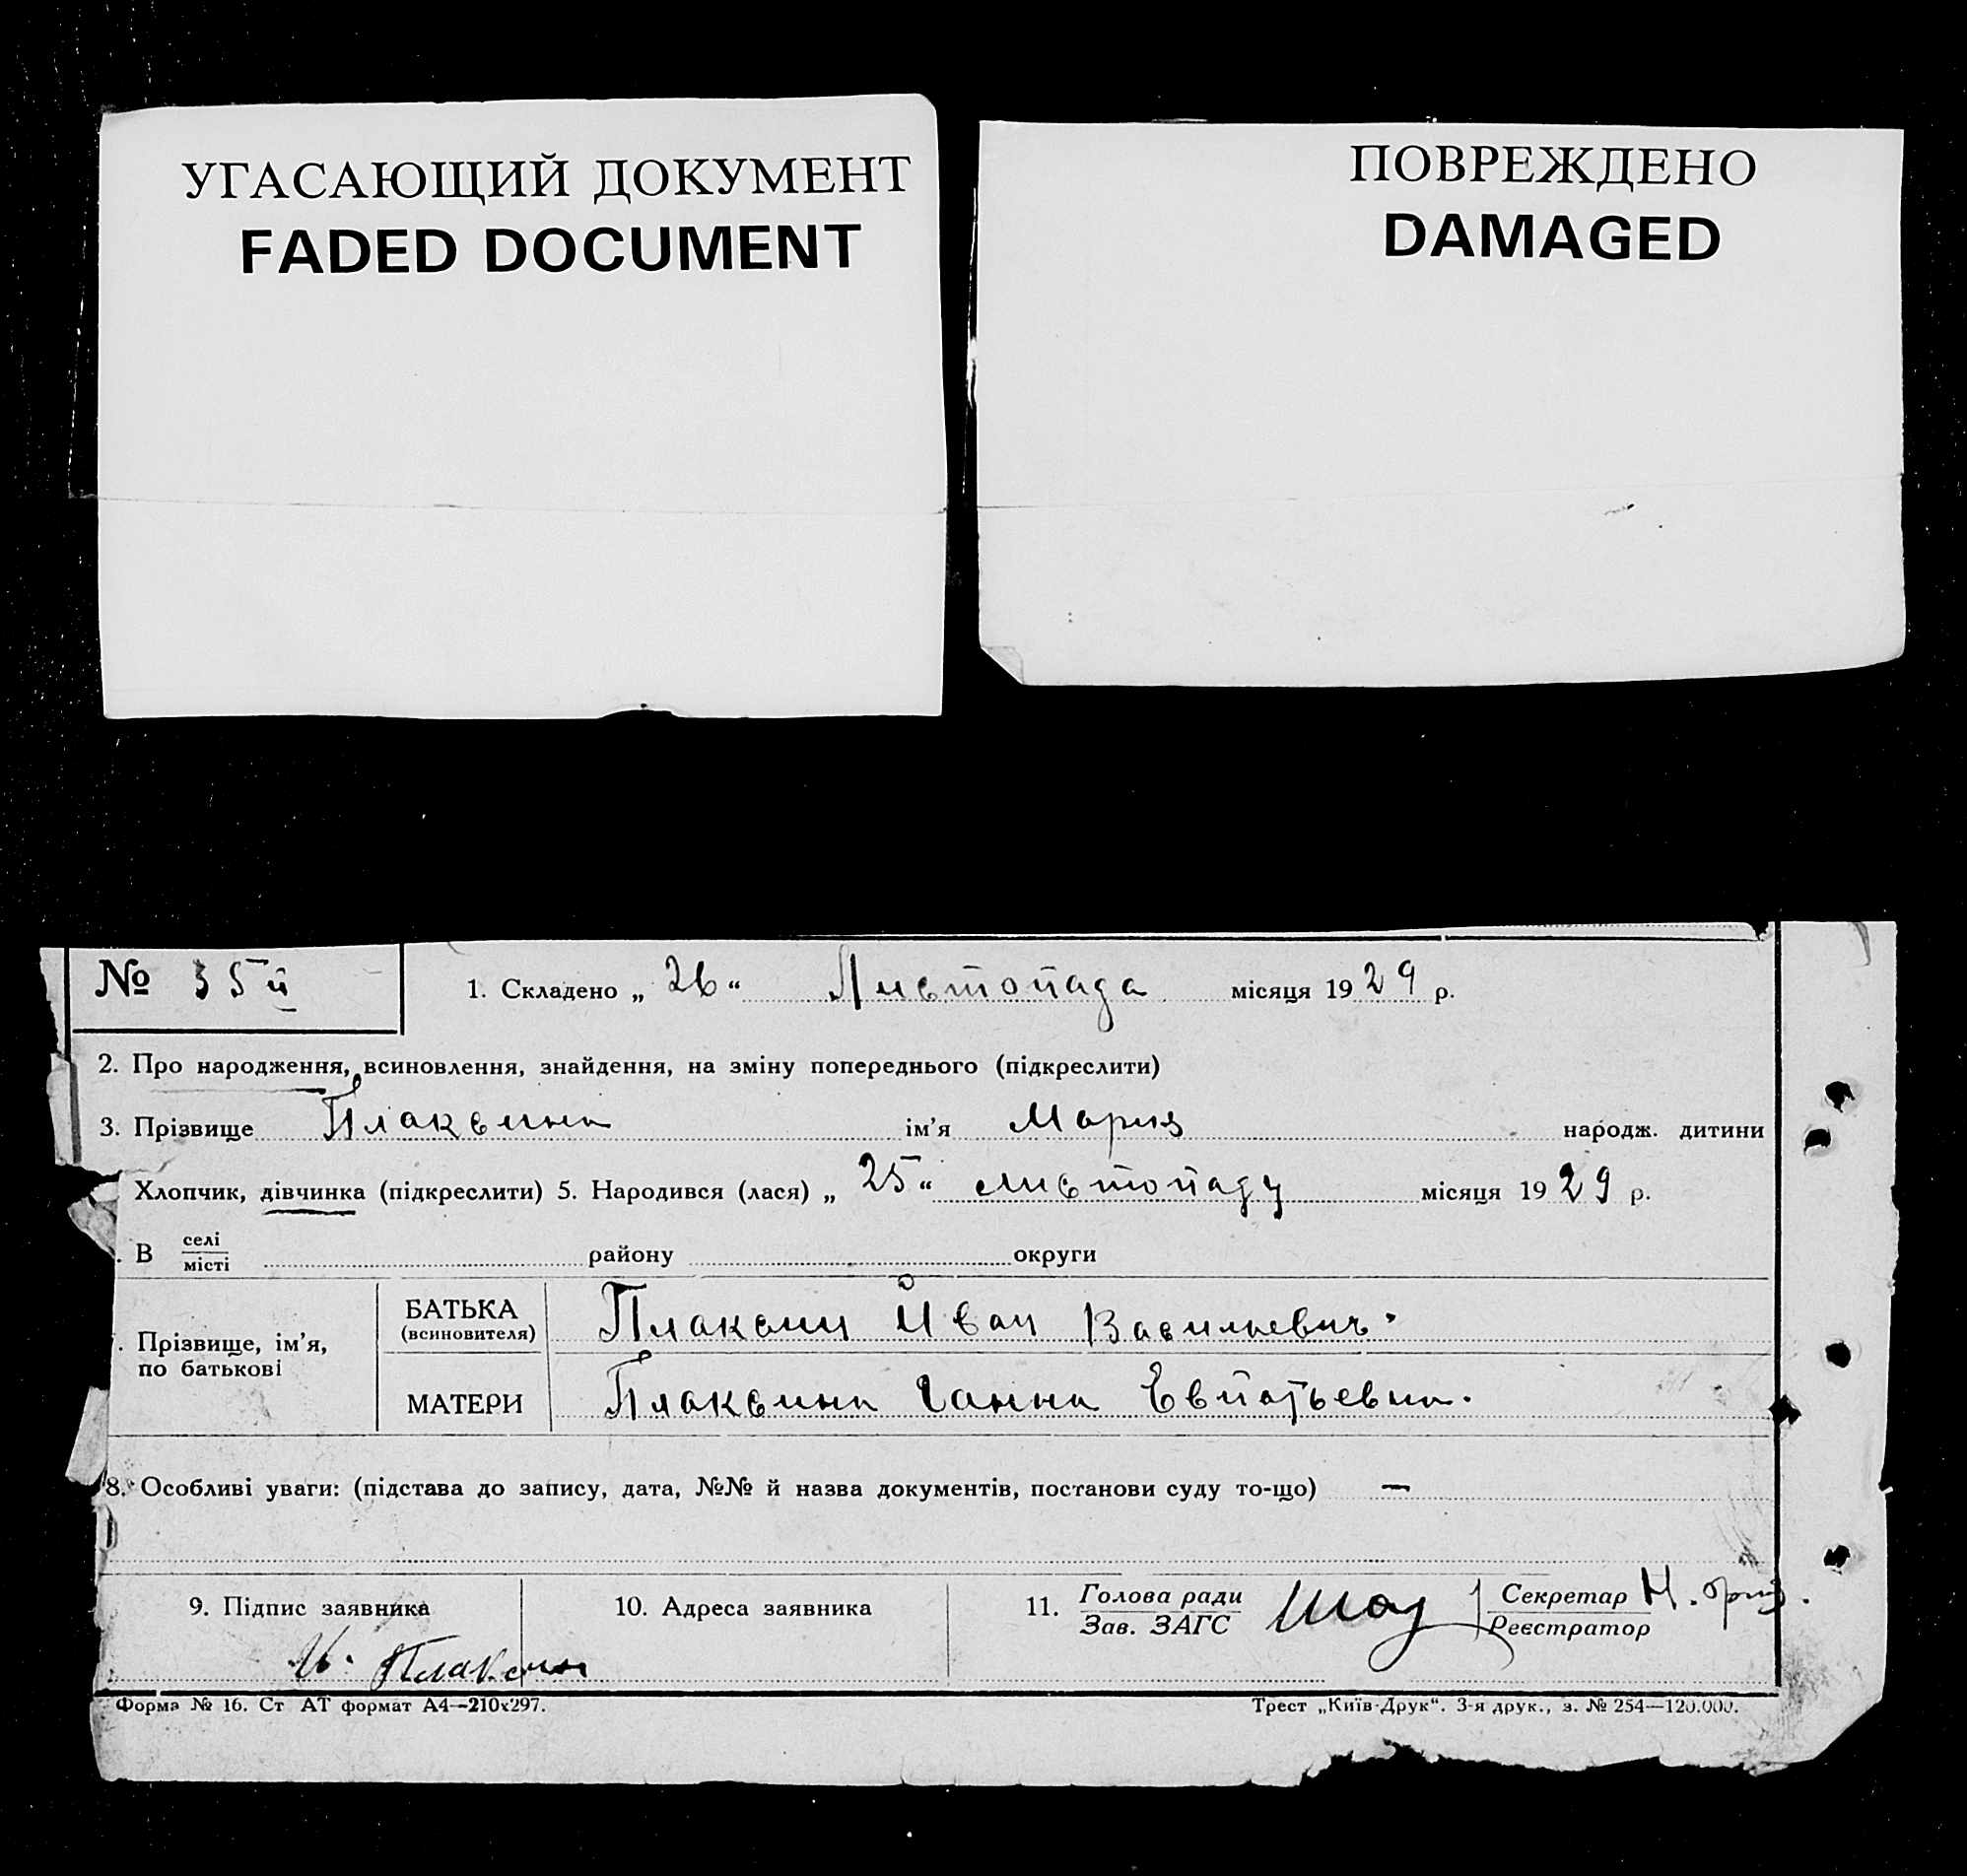 УГАСАЮЩИЙ ДОКУМЕНТ
FADED DOCUMENT
ПОВРЕЖДЕНО
DAMAGED
№ 35й 1. Складено „ 26 “ Листопада місяця 1929 р.
2. Про народження, всиновлення, знайдення, на зміну попереднього (підкреслити)
3. Прізвище Плаксина ім'я Мария народж. дитини
Хлопчик, дівчинка (підкреслити) 5. Народився (лася) „ 25 “ листопаду місяця 1929 р.
. В селі місті району округи
БАТЬКА (всиновителя) Плаксин Йван Васильевич.
. Прізвище, ім'я, по батькові
МАТЕРИ Плаксина Ганна
8. Особливі уваги: (підстава до запису, дата, №№ й назва документів, постанови суду то-що) —
9. Підпис заявника 10. Адреса заявника 11. Голова ради Зав. ЗАГС Секретар Реєстратор
И. Плаксин
Форма № 16. Ст АТ формат А4—210х297. Трест „Київ-Друк“. 3-я друк., з. № 254—120.000.